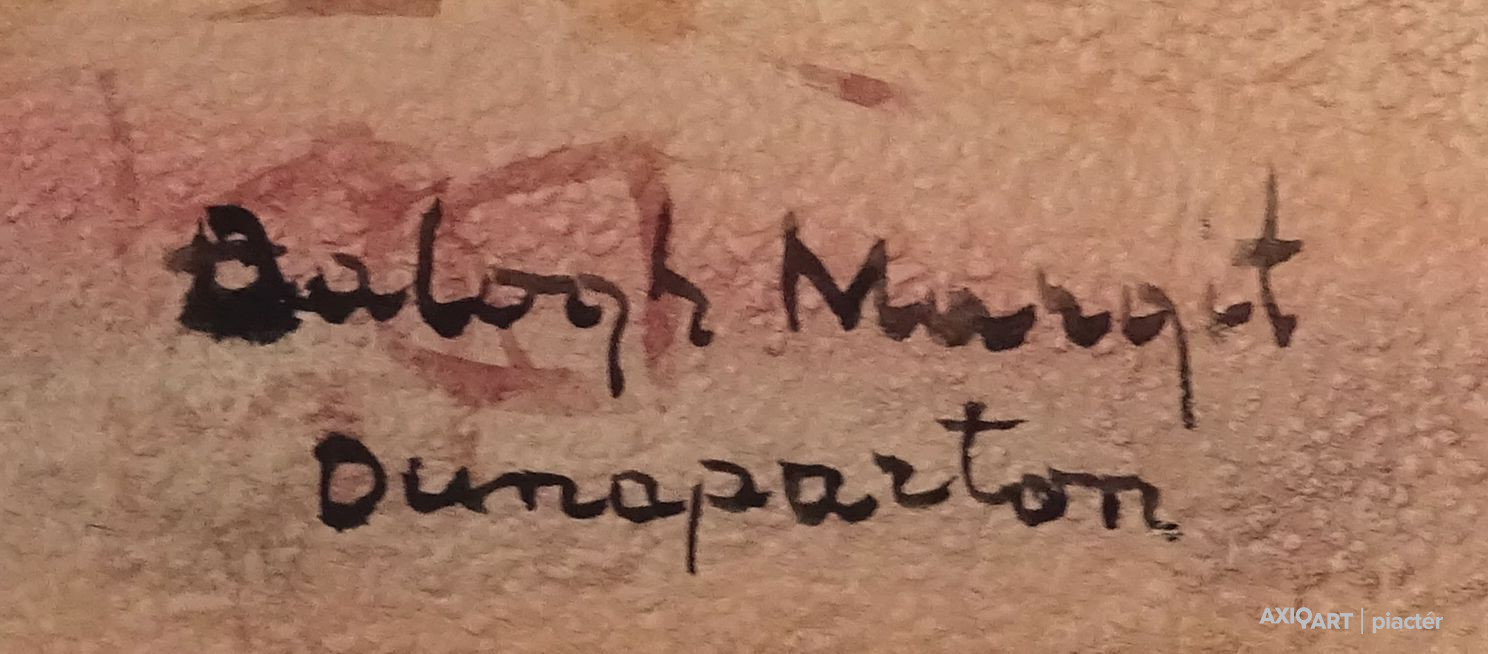 Balogh Margit
Dunaparton
AXIOART | piactér